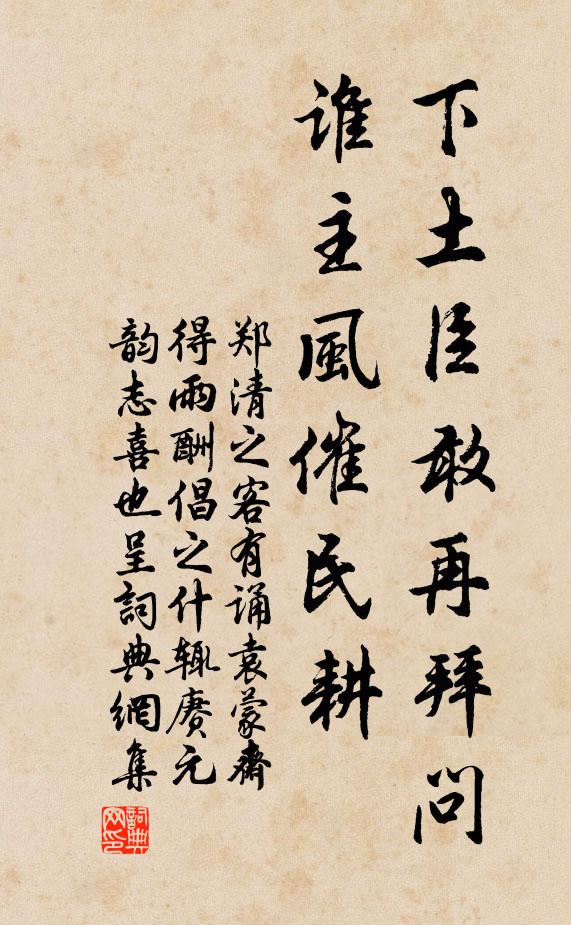 下土臣敢再拜問
誰主風催民耕
郑清之客有诵袁蒙齋
得雨酬倡之什輒赓元
韵志喜也呈詞典網集
詞典
网印